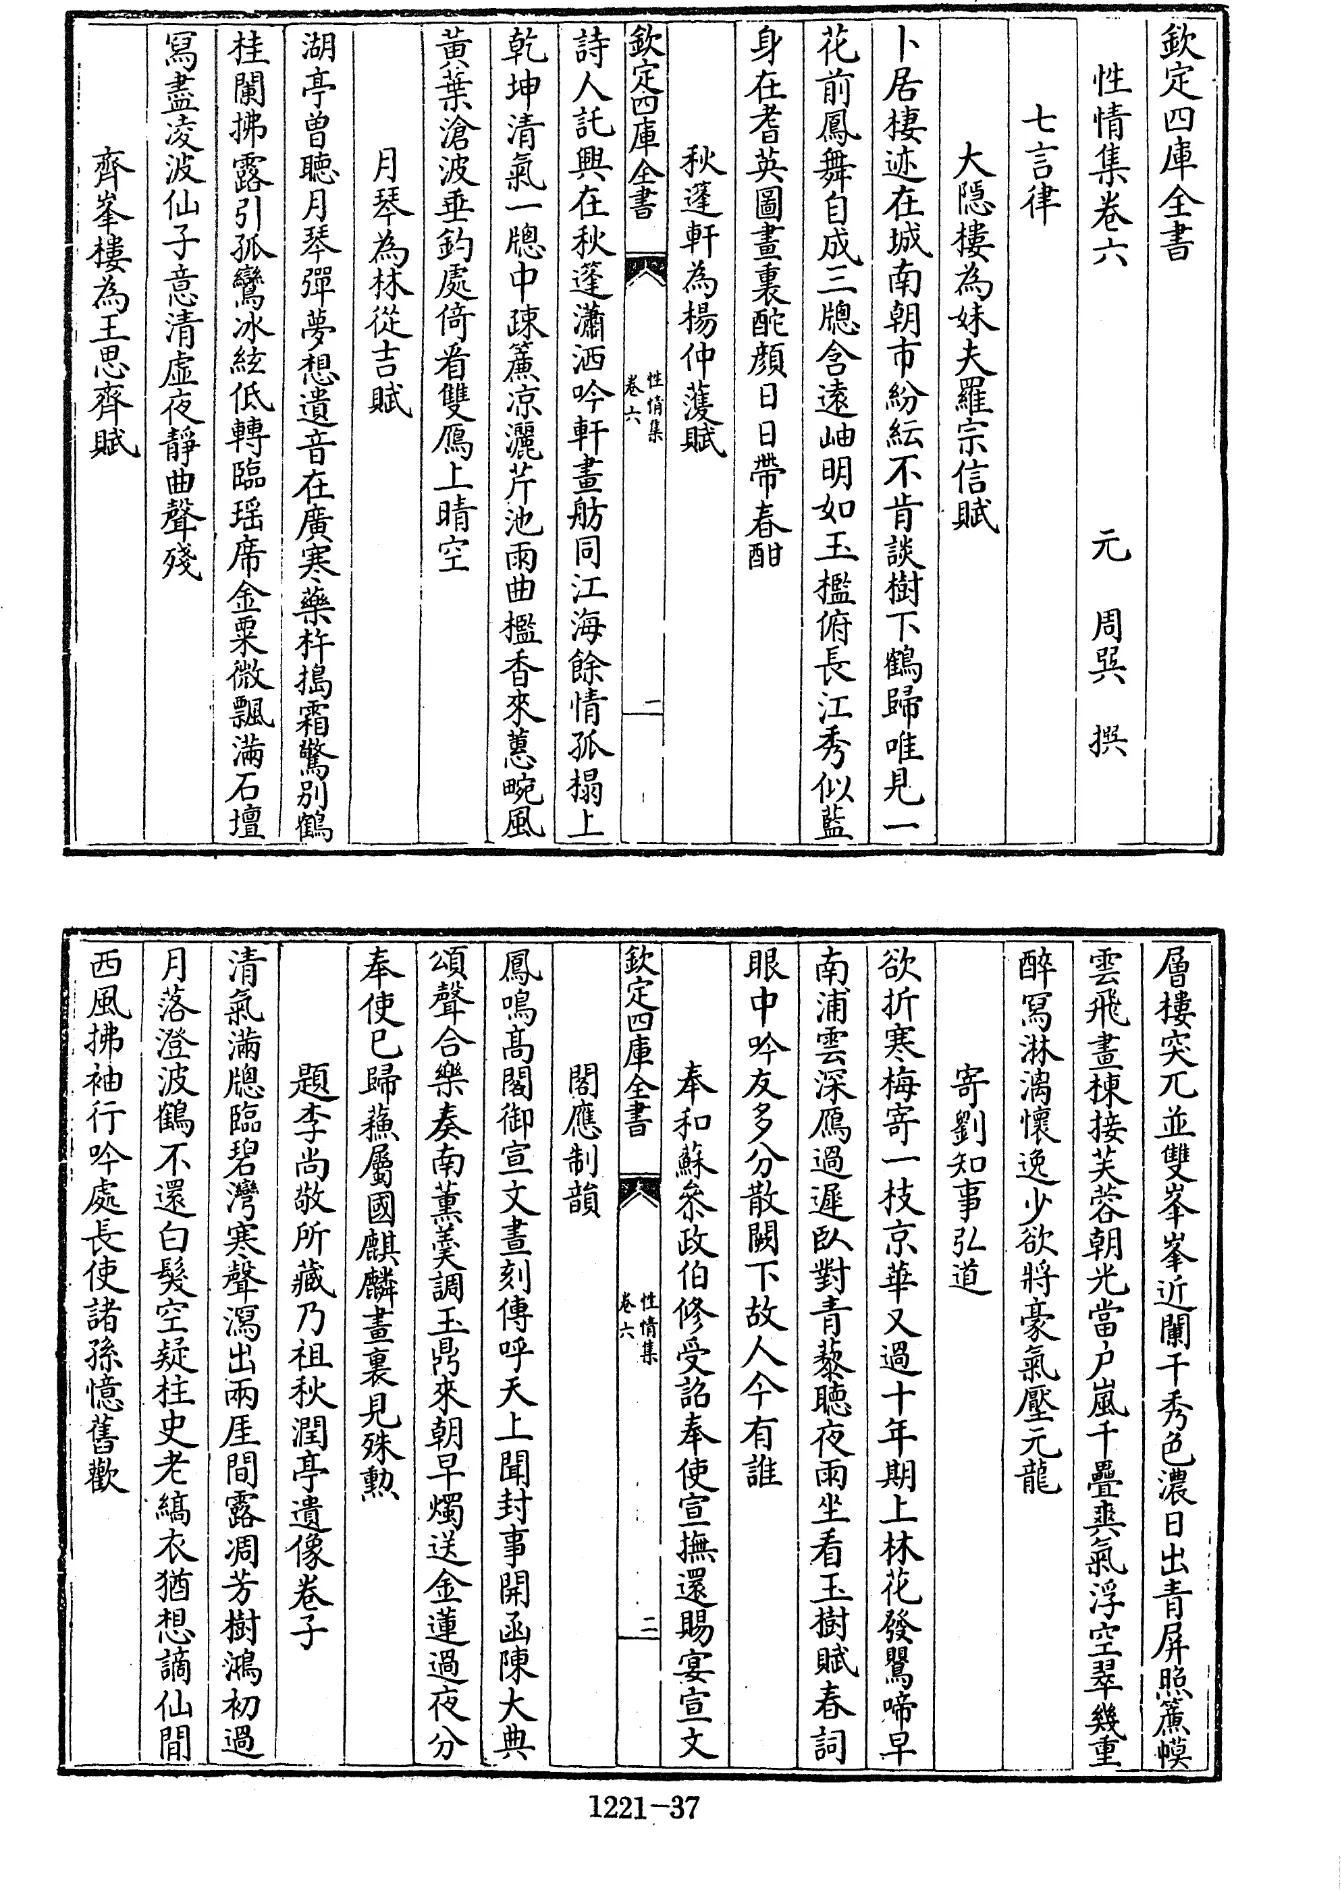 欽定四庫全書
性情集卷六
元 周巽 撰
七言律
大隱樓為妹夫羅宗信賦
卜居棲迹在城南朝市紛紜不肯談樹下鶴歸唯見一
花前鳳舞自成三牕含遠岫明如玉檻俯長江秀似藍
身在耆英圖畫裏酡顔日日帶春酣
秋蓬軒為楊仲濩賦
欽定四庫全書
性情集
卷六
一
詩人託興在秋蓬瀟洒吟軒畫舫同江海餘情孤榻上
乾坤清氣一牕中疎簾凉灑芹池雨曲檻香來蕙畹風
黄葉滄波垂釣處倚看雙鴈上晴空
月琴為林從吉賦
湖亭曽聴月琴彈夢想遺音在廣寒藥杵搗霜驚别鶴
桂闌拂露引孤鸞冰絃低轉臨瑶席金粟微飄滿石壇
寫盡凌波仙子意清虛夜靜曲聲殘
齊峯樓為王思齊賦
層樓突兀並雙峯峯近闌干秀色濃日出青屏照簾幙
雲飛畫棟接芙蓉朝光當户嵐千疊爽氣浮空翠幾重
醉寫淋漓懷逸少欲將豪氣壓元龍
寄劉知事弘道
欲折寒梅寄一枝京華又過十年期上林花發鸎啼早
南浦雲深鴈過遲臥對青藜聴夜雨坐看玉樹賦春詞
眼中吟友多分散闕下故人今有誰
奉和蘇叅政伯修受詔奉使宣撫還賜宴宣文
欽定四庫全書
性情集
卷六
二
閣應制韻
鳳鳴髙閣御宣文晝刻傳呼天上聞封事開函陳大典
頌聲合樂奏南薫羮調玉鼎來朝早燭送金蓮過夜分
奉使已歸蘓屬國麒麟畫裏見殊勲
題李尚敬所藏乃祖秋潤亭遺像卷子
清氣滿牕臨碧灣寒聲瀉出兩厓間露凋芳樹鴻初過
月落澄波鶴不還白髮空疑柱史老縞衣猶想謫仙閒
西風拂袖行吟處長使諸孫憶舊歡
1221-37